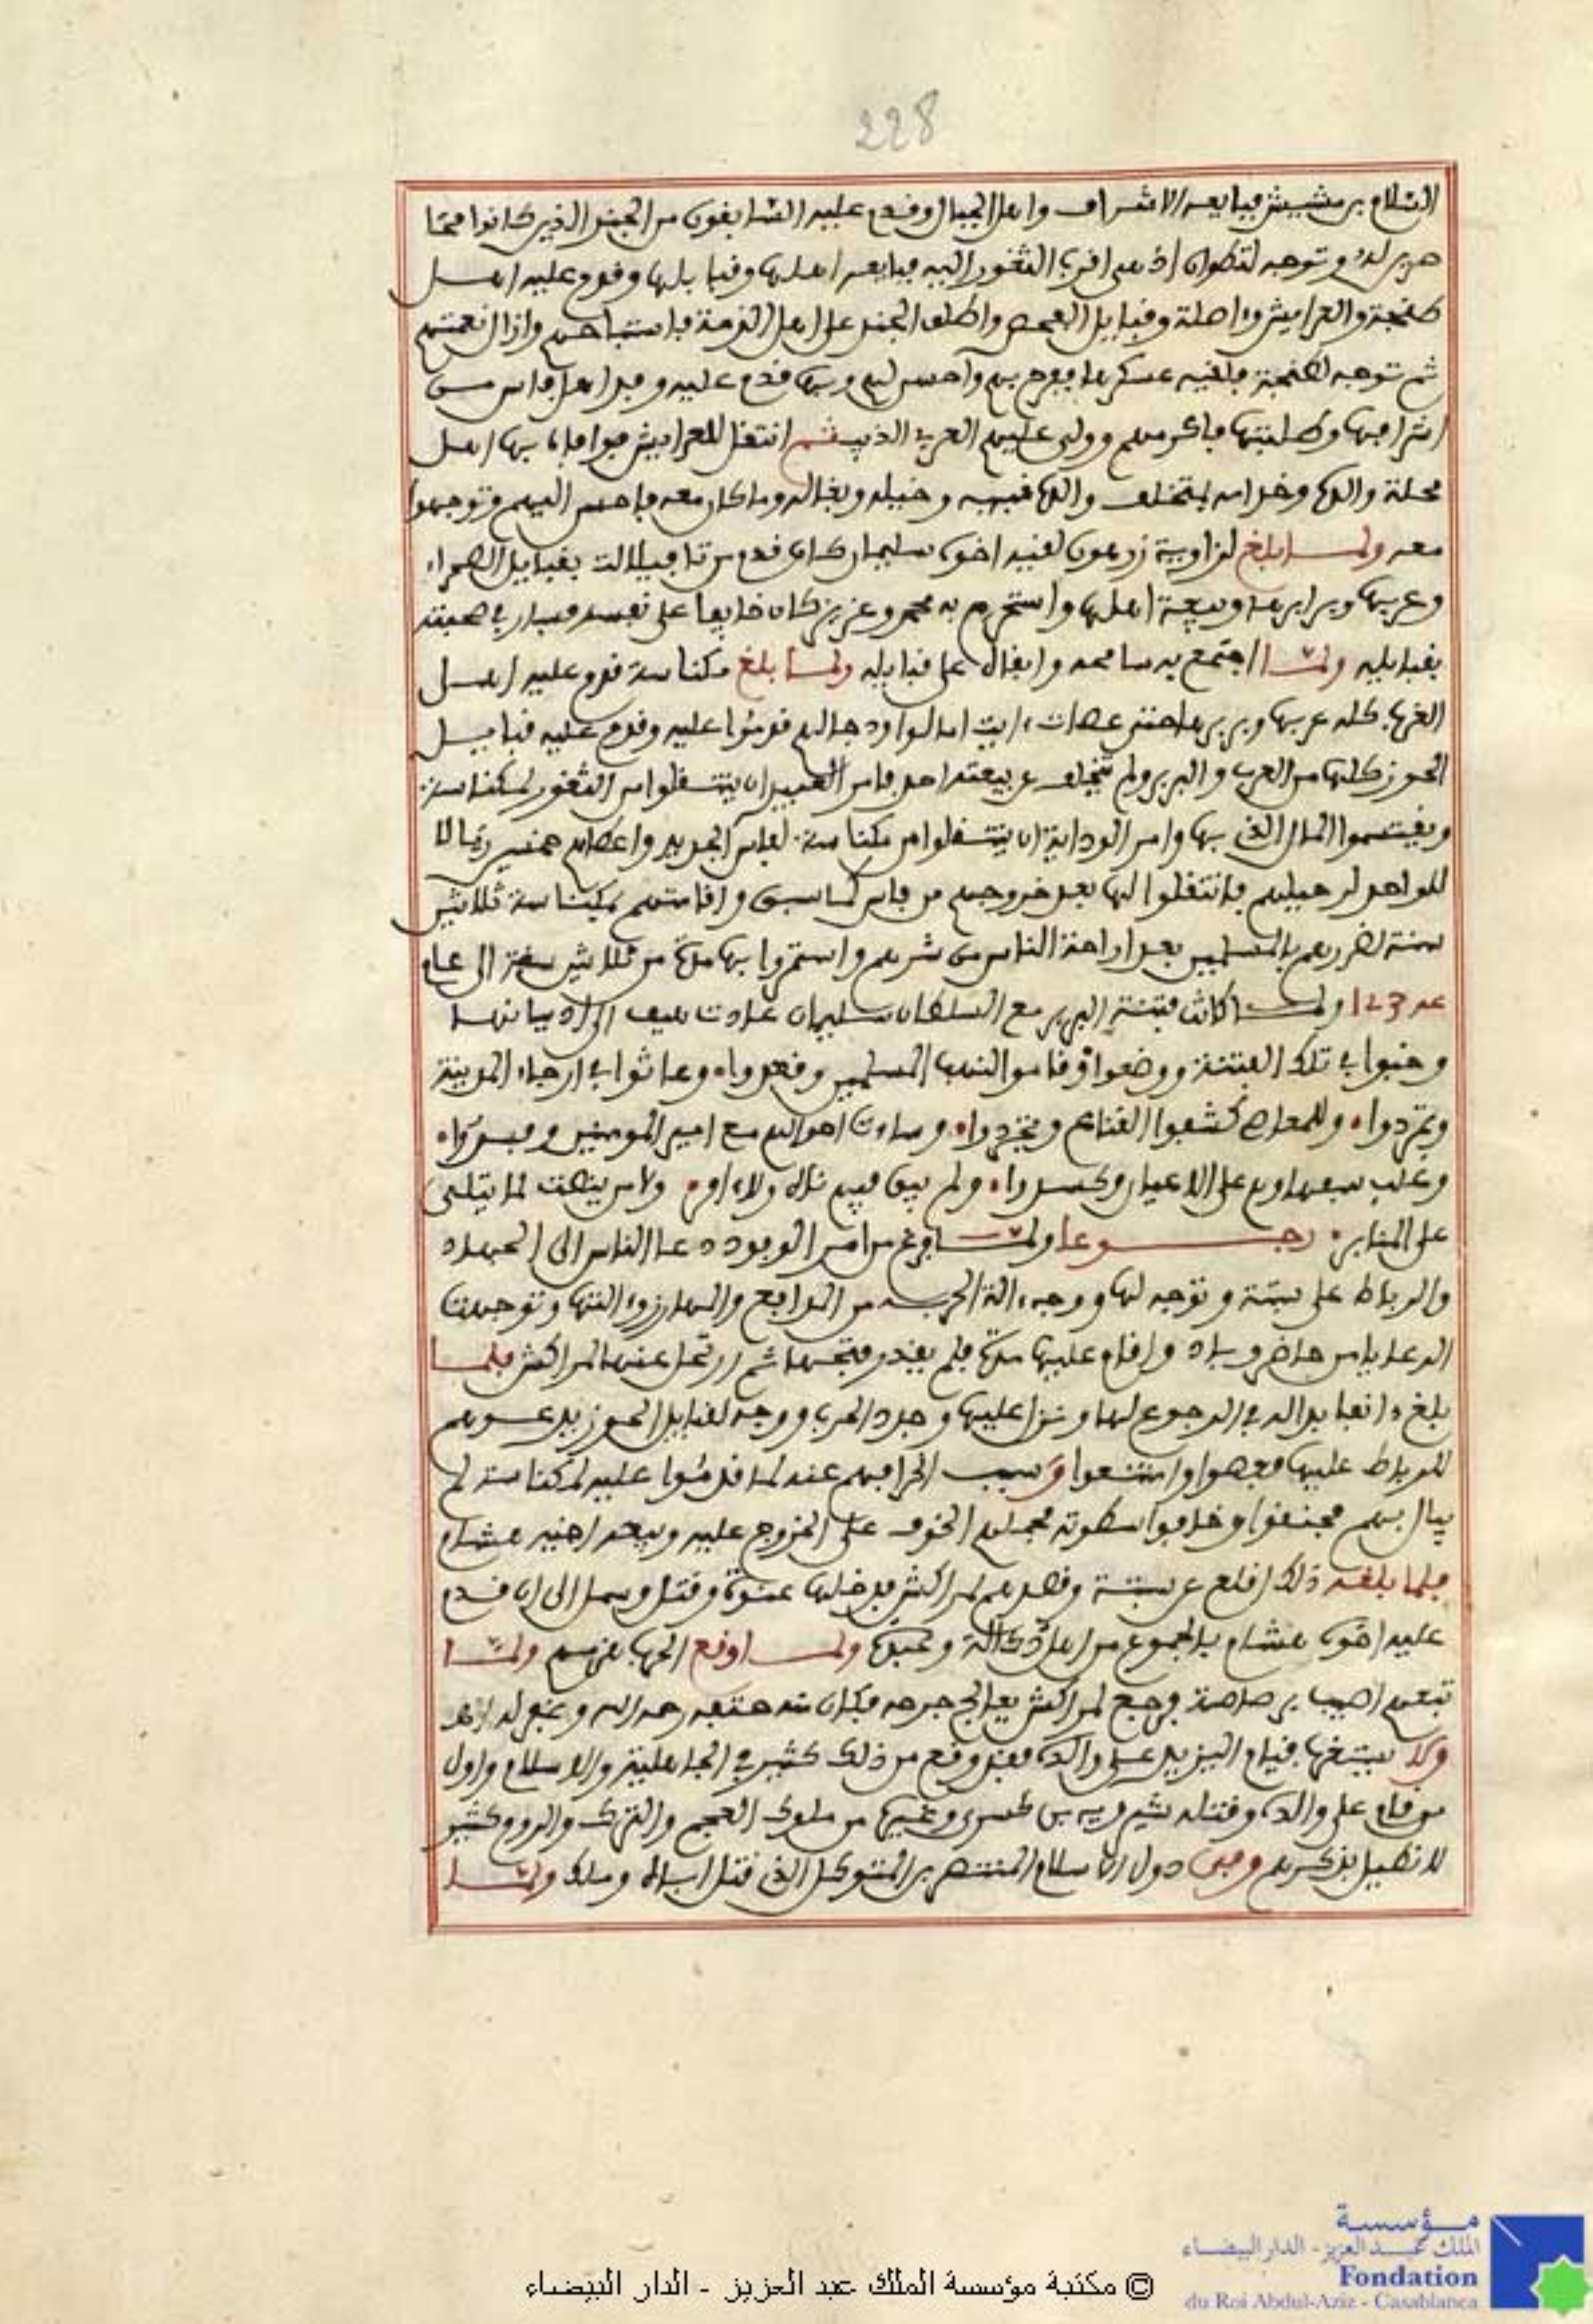 228
السلام بن مشيش فبايعه الاشراف واهل الجبال وقدم عليه السابقون من الجند الذين كانوا
له وتوجه لتطوان اذ هي اقرب الثغور اليه فبايعه اهلها وقبايلها وقدم عليه اهل
طنجة والعرايش واصيلة وقبايل الفحص واطلق الجند على اهل الذمة فاستباحهم وازال نعمتهم
ثم توجه لطنجة فلقيه عسكرها ففرح بهم واحسن اليهم وبها قدم عليه وفد اهل فاس من
اشرافها وطلبتها فاكرمهم وولى عليهم العربي الذيب ثم انتقل للعرايش فوافاه بها اهل
محلة والده وخدامه بمتخلف والده قببه وخيله وبغاله وما كان معه فاحسن اليهم وتوجهوا
معه ولما بلغ لزاوية زرهون لقيه اخوه سليمان كان قدم من تافيلالت بقبايل الصحراء
وعربها وبرابرها وبيعة اهلها واستحرم به محمد وعزيز كان خايفا على نفسه فسار في صحبته
بقبايله ولما اجتمع به سامحه وابقاه على قبايله ولما بلغ مكناسة قدم عليه اهل
الغرب كله عربها وبربرها حتى عصاة ايت امالوا ودجالهم قدموا عليه وقدم عليه قبايل
الحوز كلها من العرب والبربر ولم يتخلف عن بيعته احد فامر العبيد ان ينتقلوا من الثغور لمكناسة
ويقتسموا المال الذي بها وامر الوداية ان ينتقلوا من مكناسة لفاس الجديد واعطاهم خمسين ريالا
للواحد لرحيلهم فانتقلوا اليها بعد خروجهم من فاس كما سبق واقامتهم بمكناسة ثلاثين
سنة لضررهم بالمسلمين بعد اراحة الناس من شرهم واستمروا بها مدة من ثلاثين سنة الى عام
عه 123 ولما كانت فتنة البربر مع السلطان سليمان
وخبوا في تلك الفتنة ووضعوا وقاموا لنهب المسلمين وقعدوا وعاثوا في ارجاء المدينة
وتمردوا وللمعاصي كشفوا القناع وتجردوا وساءت احوالهم مع امير المومنين وفسدوا
وغلب سفهاؤهم على الاعيان وكسدوا ولم يبق فيهم ناه ولا امر ولا من ينصت لما يتلى
على المنابر رجوعا ولما فرغ من امر الوفود دعا الناس الى الجهاد
والرباط على سبتة وتوجه لها ووجه ءالة الحرب من المدافع والمهارز والتها وتوجهت
الرعايا من حاضر وباد واقام عليها مدة فلم يقدر فتحها ثم ارتحل عنها لمراكش فلما
بلغ دا نفا بدا له في الرجوع لها ونزل عليها وجدد الحرب ووجه لقبايل الحوز يدعوهم
للرباط عليها فعصوا وامتنعوا وسبب انحرافهم عنه لما قدموا عليه لمكناسة لم
يبال بهم فحنقوا وخافوا سطوته فحملهم الخوف على الخروج عليه وبيعة اخيه هشام
فلما بلغه ذلك اقلع عن سبتة وقصدهم لمراكش فدخلها عنوة وقتل وسمل الى ان قدم
عليه اخوه هشام بالجموع من اهل دكالة وعبدة ولما وقع الحرب هزمهم ولما
تبعهم اصيب برصاصة فرجع لمراكش يعالج جرحه فكان منه حتفه رحمه الله وغفر له
ولا يستغرب قيام اليزيد على والده فقد وقع من ذلك كثير في الجاهلية والاسلام واول
من قام على والده وقتله شيرويه بن كسرى وغيرها من ملوك العجم والترك والروم كثير
لا نطيل بذكرهم وفي دول الاسلام المنتصر بن المتوكل الذي قتل اباه وملك ولما
© مكتبة مؤسسة الملك عبد العزيز - الدار البيضاء
مؤسسة
الملك عبد العزيز - الدار البيضاء
Fondation
du Roi Abdul-Aziz - Casablanca